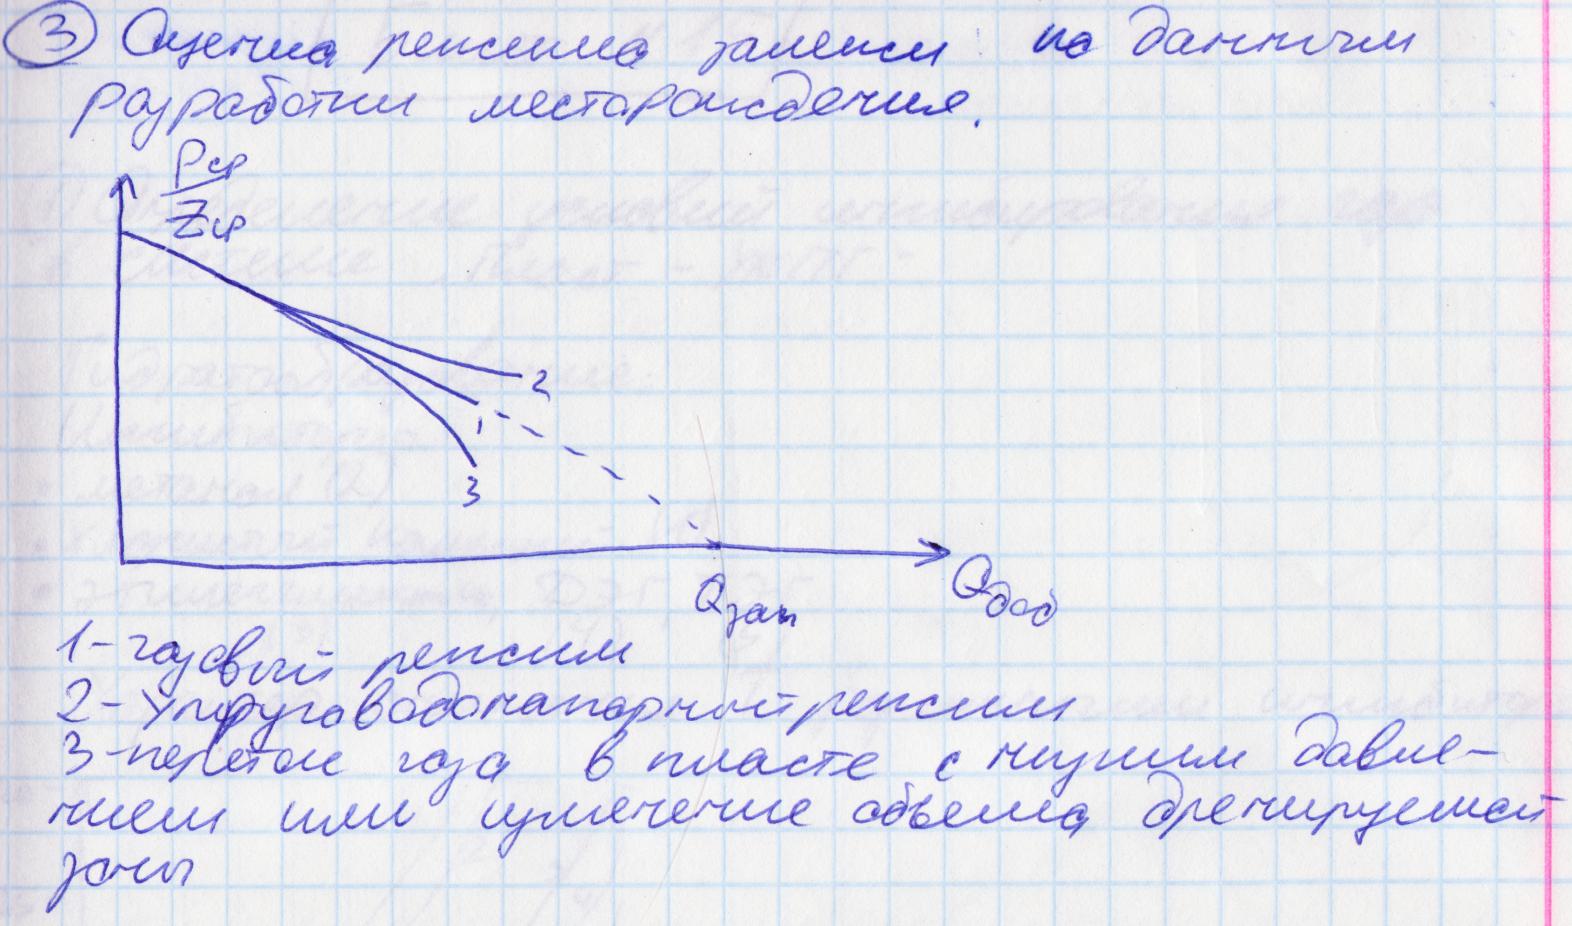 3 Оценка режима залежи по данным
разработки месторождения.
Pср
Zср
2
1
3
Qзап
Qдоб
1-газовый режим
2-Упруговодонапорный режим
3-переток газа в пласте с низким давле-
нием или изменение объема дренируемой
зоны